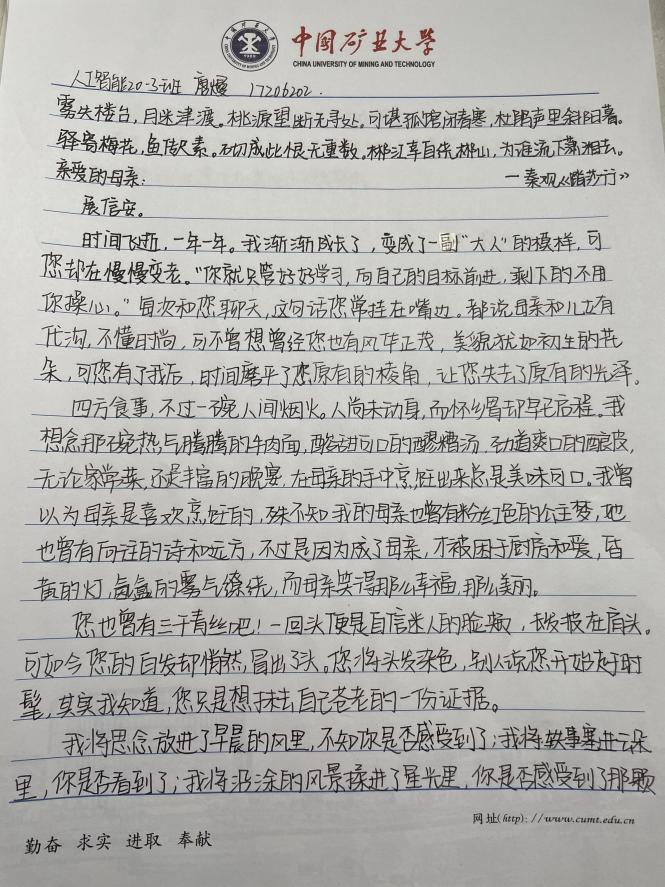 中国矿业大学
CHINA UNIVERSITY OF MINING AND TECHNOLOGY
人工智能20-3班 17206202.
雾失楼台，月迷津渡。桃源望断无寻处。可堪孤馆闭春寒，杜鹃声里斜阳暮。
驿寄梅花，鱼传尺素。砌成此恨无重数。郴江幸自绕郴山，为谁流下潇湘去。
—秦观《踏莎行》
亲爱的母亲：
展信安。
时间飞逝，一年一年。我渐渐成长了，变成了一副“大人”的模样，可
您却在慢慢变老。“你就只管好好学习，向自己的目标前进，剩下的不用
你操心。”每次和您聊天，这句话您常挂在嘴边。都说母亲和儿女有
代沟，不懂时尚，可不曾想曾经您也有风华正茂，美貌犹如初生的花
朵，可您有了我后，时间磨平了您原有的棱角，让您失去了原有的光泽。
四方食事，不过一碗人间烟火。人尚未动身，而怀绪却早已启程。我
想念那碗热气腾腾的牛肉面，酸甜可口的醪糟汤，劲道爽口的酿皮，
无论家常菜，还是丰富的晚宴，在母亲的手中烹饪出来总是美味可口。我曾
以为母亲是喜欢烹饪的，殊不知我的母亲也曾有粉红色的公主梦，她
也曾有向往的诗和远方，不过是因为成了母亲，才被困于厨房和爱，昏
黄的灯，氤氲的雾气缭绕，而母亲笑得那么幸福，那么美丽。
您也曾有三千青丝吧！一回头便是自信迷人的脸颊，长发披在肩头。
可如今您的白发却悄然冒出了头。您将头发染色，别人说您开始好时
髦，其实我知道，您只是想抹去自己苍老的一份证据。
我将思念放进了早晨的风里，不知你是否感受到了；我将轶事塞进云朵
里，你是否看到了；我将沿途的风景揉进了星光里，你是否感受到了那颗
网址(http)：//www.cumt.edu.cn
勤奋 求实 进取 奉献